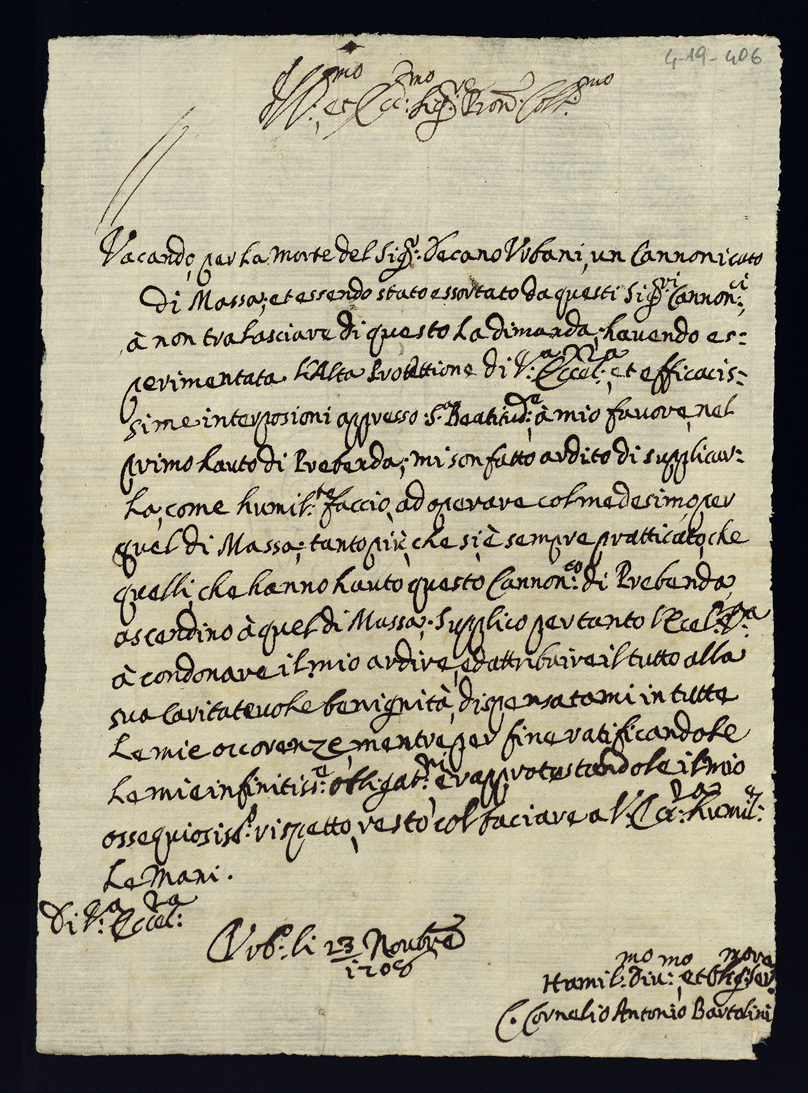 4-19-406
Ill.mo et Ecc.mo Sig.re Pron. Coll.mo
Vacando, per la morte del Sig.r Decano Urbani, un Cannonicato
di Massa; et essendo stato essortato da questi Sig.ri Cannon.ci,
à non tralasciare di questo la dimanda; havendo es=
perimentata l'Alta Protettione di V.a Eccel.za, et efficacis=
sime interposioni appresso S.a Beatitud.e à mio favore, nel
primo hauto di Prebenda; mi son fatto ardito di supplicar=
la, come humil.te faccio, ad operare col medesimo, per
quel di Massa; tanto più, che si è sempre pratticato, che
quelli, che hanno hauto questo Cannon.co di Prebenda,
ascendino à quel di Massa. Supplico per tanto l'Eccel. V.ra
à condonare il mio ardire, ed attribuire il tutto alla
sua Caritatevole benignità, dispensatami in tutte
le mie occorenze, mentre per fine ratificandole
le mie infinitiss.e obligat.ni, e rapprotestandole il mio
ossequiosiss.o rispetto, resto col baciare a V. Ecc.za humil.e
le Mani.
Di V.a Eccel.za
Urb.o li 23 Novbre
1708
Humil.mo Div.mo et Oblig.mo Ser.re
C. Cornelio Antonio Bartolini